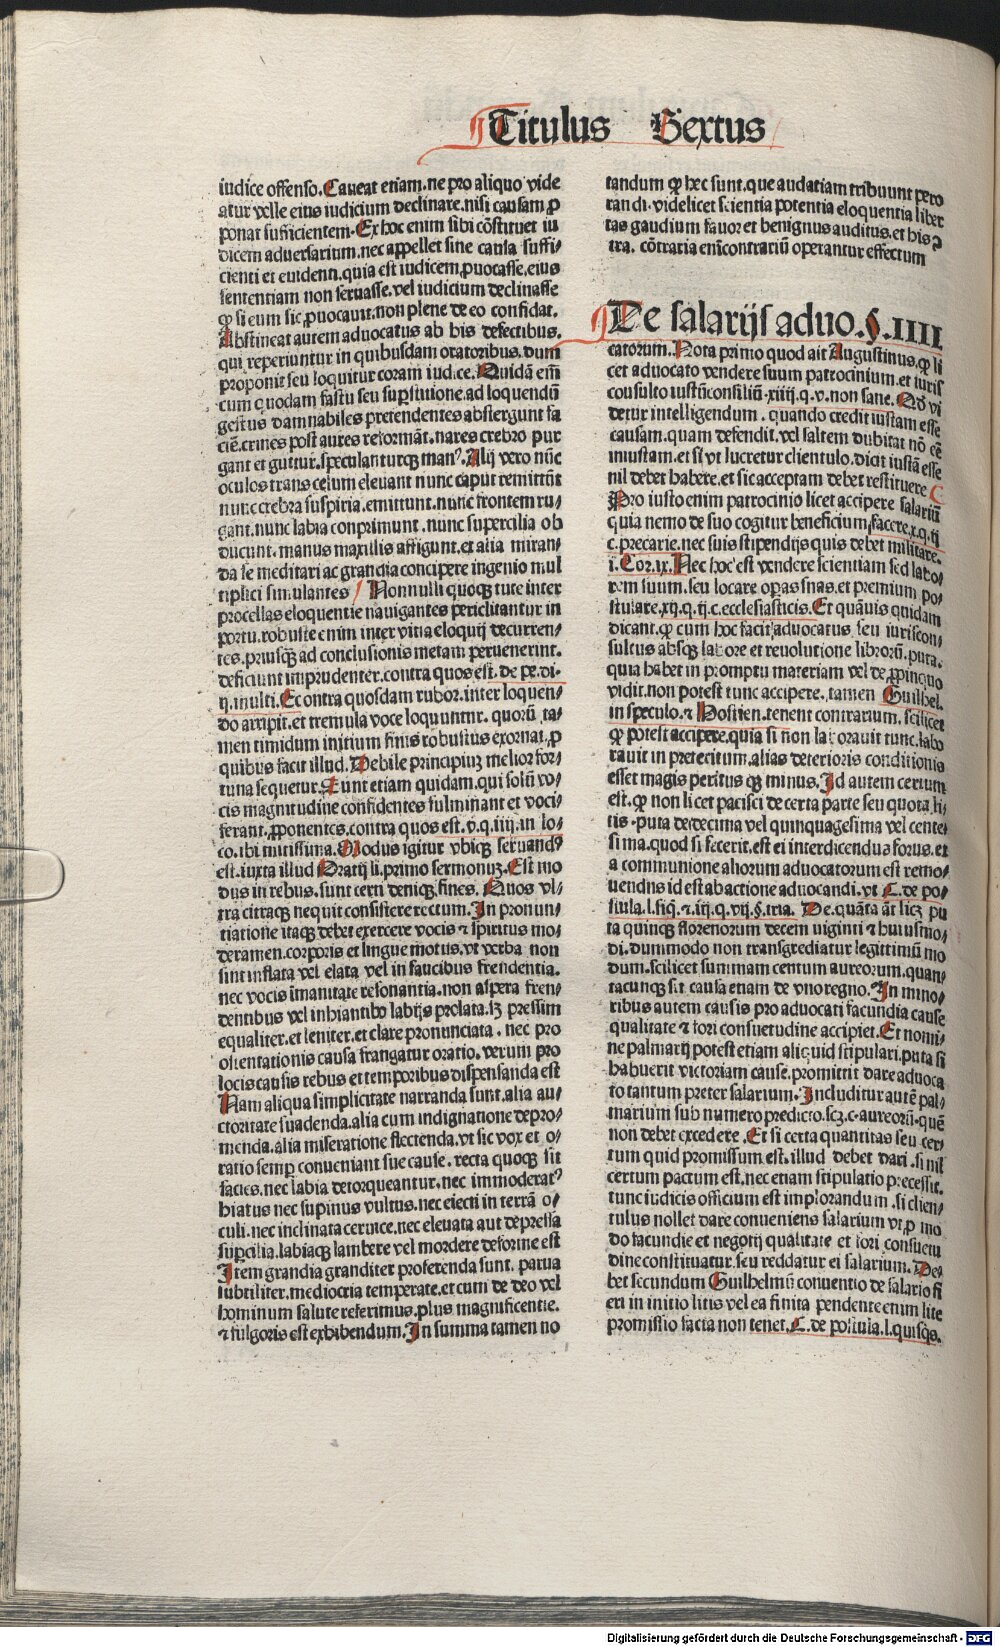 Titulus Sextus
iudice offenso. Caueat etiam. ne pro aliquo vide
atur velle eius iudicium declinare. nisi causam ꝓ
ponat sufficientem. Ex hoc enim sibi cõstituet iu
dicem aduersarium. nec appellet sine causa suffi/
cienti et euidenti. quia est iudicem ꝓuocasse. eius
sententiam non seruasse. vel iudicium declinasse
ꝙ si eum sic ꝓuocauit. non plene de eo confidat.
Abstineat autem aduocatus ab his defectibus.
qui reperiuntur in quibusdam oratoribus. dum
proponit seu loquitur coram iudice. Quidã em̃
cum quodam fastu seu suꝑstitione. ad loquendũ
gestus damnabiles pretendentes abstergunt fa
ciẽ. crines post aures reformãt. nares crebro pur
gant et guttur. speculanturqꝫ manꝰ. Alij vero nũc
oculos trans celum eleuant nunc caput remittũt
nunc crebra suspiria. emittunt. nunc frontem ru/
gant. nunc labia conprimunt. nunc supercilia ob
ducunt. manus maxillis affigunt. et alia miran/
da se meditari ac grandia concipere ingenio mul
tiplici simulantes / Nonnulli quoqꝫ tute inter
procellas eloquentie nauigantes periclitantur in
portu. robuste enim inter vitia eloquij decurren/
tes. priusqꝫ ad conclusionis metam peruenerint.
deficiunt imprudenter. contra quos est. de pe. di.
ij. multi. Econtra quosdam rubor. inter loquen/
do arripit. et tremula voce loquuntur. quorũ ta/
men timidum initium finis robustius exornat. ꝓ
quibus facit illud. Debile principiuꝫ melior for/
tuna sequetur. Sunt etiam quidam. qui solũ vo/
cis magnitudine confidentes fulminant et voci/
ferant. ꝓponentes. contra quos est. v. q. iiij. in lo/
co. ibi mitissima. Modus igitur vbiqꝫ seruandꝰ
est. iuxta illud Oratij li. primo sermonuꝫ. Est mo
dus in rebus. sunt certi deniqꝫ fines. Quos vl/
tra citraqꝫ nequit consistere rectum. In pronun/
tiatione itaqꝫ debet exercere vocis ⁊ spiritus mo/
deramen. corporis et lingue motus. vt verba non
sint inflata vel elata vel in faucibus frendentia.
nec vocis ĩmanitate resonantia. non aspera fren/
dentibus vel inhiantibꝰ labijs prolata. sꝫ pressim
equaliter. et leniter. et clare pronunciata. nec pro
ostentationis causa frangatur oratio. verum pro
locis causis rebus et temporibus dispensanda est
Nam aliqua simplicitate narranda sunt. alia au/
ctoritate suadenda. alia cum indignatione depro/
menda. alia miseratione flectenda. vt sic vox et o/
ratio semꝑ conueniant sue cause. recta quoqꝫ sit
facies. nec labia detorqueantur. nec immoderatꝰ
hiatus nec supinus vultus. nec eiecti in terrã o/
culi. nec inclinata ceruice. nec eleuata aut depressa
suꝑcilia. labiaqꝫ lambere vel mordere deforme est
Item grandia granditer proferenda sunt. parua
subtiliter. mediocria temperate. et cum de deo vel
hominum salute referimus. plus magnificentie.
⁊ fulgoris est exhibendum. In summa tamen no
tandum ꝙ hec sunt. que audatiam tribuunt pero
randi. videlicet scientia potentia eloquentia liber
tas gaudium fauor et benignus auditus. et his ꝯ
tra. cõtraria em̃ contrariũ operantur effectum
De salarijs aduo. §. IIII
catorum. Nota primo quod ait Augustinus. ꝙ li
cet aduocato vendere suum patrocinium. et iuris
consulto iustũ consiliũ. xiiij. q. v. non sane. Qd vi
detur intelligendum. quando credit iustam esse
causam. quam defendit. vel saltem dubitat nõ eẽ
iniustam. et si vt lucretur clientulo. dicit iustã esse
nil debet habere. et sic acceptam debet restituere C
Pro iusto enim patrocinio licet accipere salariũ
quia nemo de suo cogitur beneficium facere. x. q. ij
c. precarie. nec suis stipendijs quis debet militare.
i. Cor. ix. Nec hoc est vendere scientiam sed labo/
rem suum. seu locare operas suas. et premium po/
stulare. xij. q. ij. c. ecclesiasticis. Et quãuis quidam
dicant. ꝙ cum hoc facit aduocatus seu iuriscon/
sultus absqꝫ labore et reuolutione librorũ. puta.
quia habet in promptu materiam vel de ꝓpinquo
vidit. non potest tunc accipere. tamen Guilhel.
in speculo. ⁊ Hostien. tenent contrarium. scilicet
ꝙ potest accipere. quia si non laborauit tunc. labo
rauit in preteritum. alias deterioris conditionis
esset magis peritus qꝫ minus. Id autem certum
est. ꝙ non licet pacisci de certa parte seu quota li/
tis. puta de decima vel quinquagesima vel cente/
sima. quod si fecerit. est ei interdicendus forus. et
a communione aliorum aduocatorum est remo/
uendus id est ab actione aduocandi. vt C. de po/
stula. l. si q̃. ⁊. iij. q. vij. §. tria. De. quãta ãt licꝫ pu
ta quinqꝫ florenorum decem uiginti ⁊ huiusmo/
di. dummodo non transgrediatur legittimũ mo
dum. scilicet summam centum aureorum. quan/
tacunqꝫ sit causa etiam de vno regno. In mino/
ribus autem causis pro aduocati facundia cause
qualitate ⁊ fori consuetudine accipiet. Et nomi/
ne palmarij potest etiam aliquid stipulari. puta si
habuerit victoriam cause. promittit dare aduoca
to tantum preter salarium. Includitur autẽ pal/
marium sub numero predicto. scꝫ. c. aureorũ. quẽ
non debet excedere. Et si certa quantitas seu cer/
tum quid promissum est. illud debet dari. si nil
certum pactum est. nec etiam stipulatio precessit.
tunc iudicis officium est implorandum. si clien/
tulus nollet dare conueniens salarium vt ꝓ mo
do facundie et negotij qualitate et fori consuetu
dine constituatur. seu reddatur ei salarium. De/
bet secundum Guilhelmũ conuentio de salario fi
eri in initio litis vel ea finita pendente enim lite
promissio facta non tenet. C. de postula. l. quisq̃s.